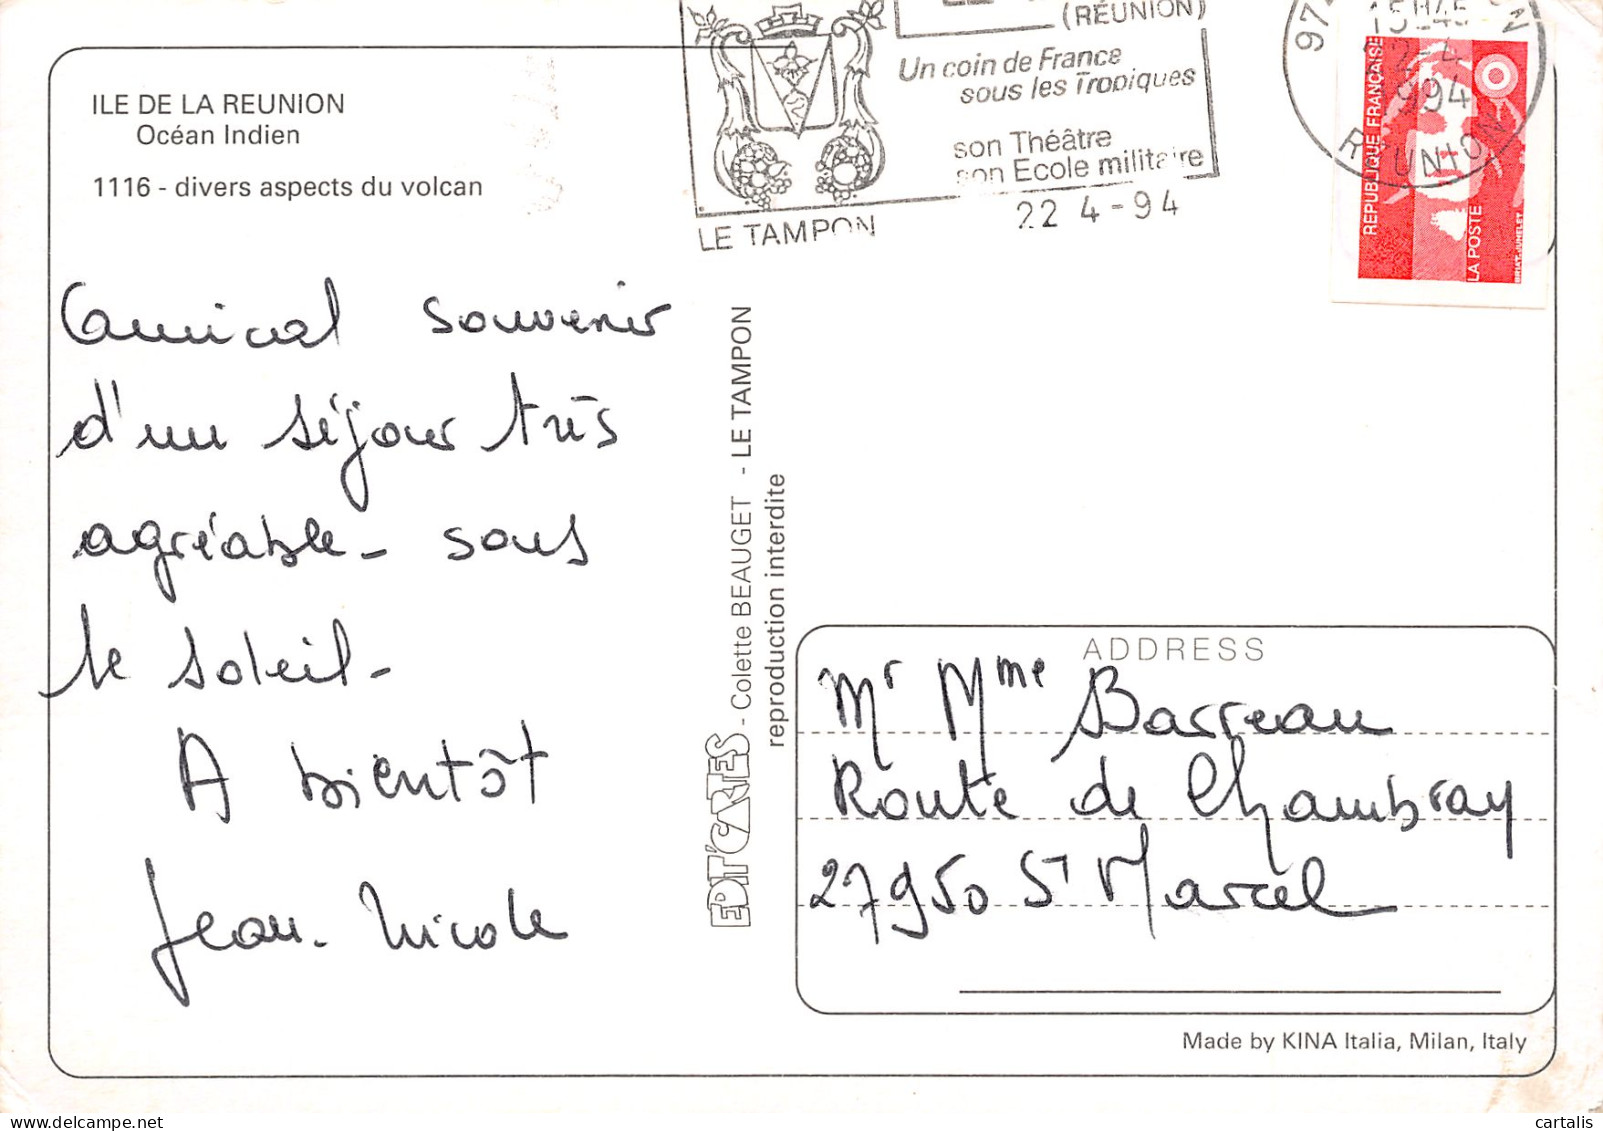 ILE DE LA REUNION
Océan Indien
1116 - divers aspects du volcan
(RÉUNION)
Un coin de France
sous les Tropiques
son Théâtre
son Ecole militaire
LE TAMPON
22 4-94
974
15H45
22-4
1994
REUNION
REPUBLIQUE FRANÇAISE
LA POSTE
BRIAT-JUMELET
Amical souvenir
d'un séjour très
agréable - sous
le soleil -
A bientôt
Jean. Nicole
EDIT'CARTES - Colette BEAUGET - LE TAMPON
reproduction interdite
ADDRESS
Mr Mme Barreau
Route de Chambray
27950 St Marcel
Made by KINA Italia, Milan, Italy
cartalis